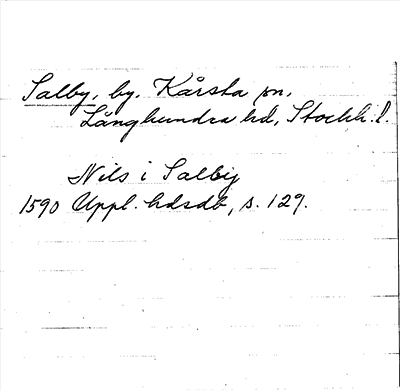 Salby, by. Kårsta sn,
Långhundra hd, Stockh. l.
Nils i Salby
1590 Uppl. hdsdb, s. 129.